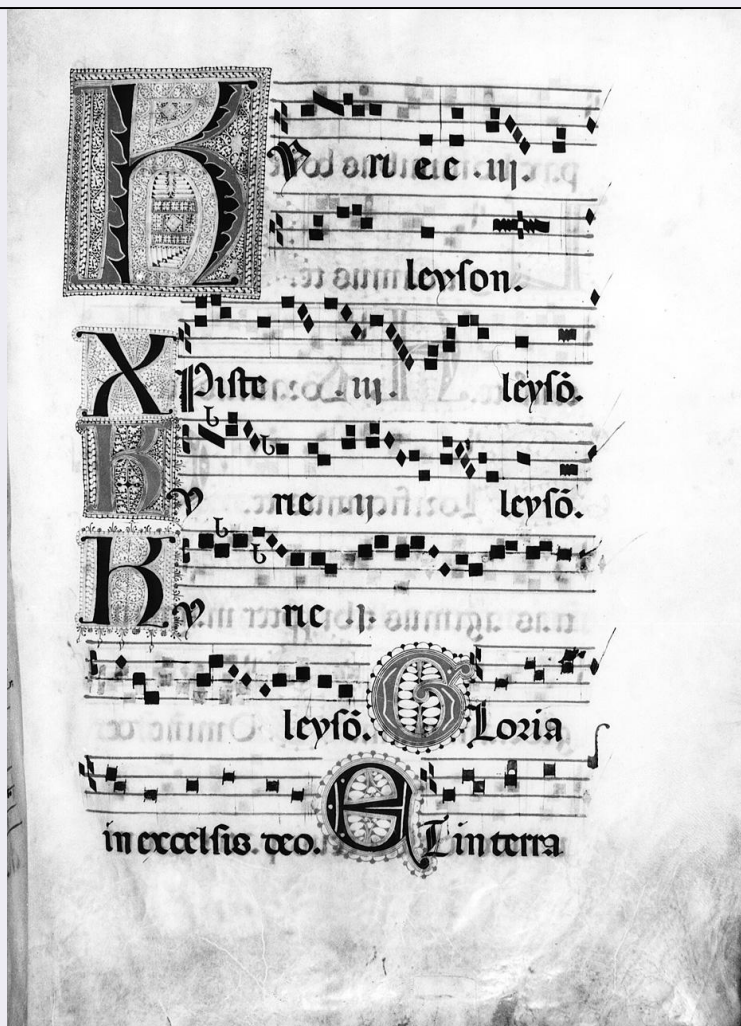 KYrie e .iij.
leyson.
XPiste .iij. leysō.
Ky rie .ij. leysō.
Ky rie .j.
leysō. Gloria
in excelsis deo. Et in terra